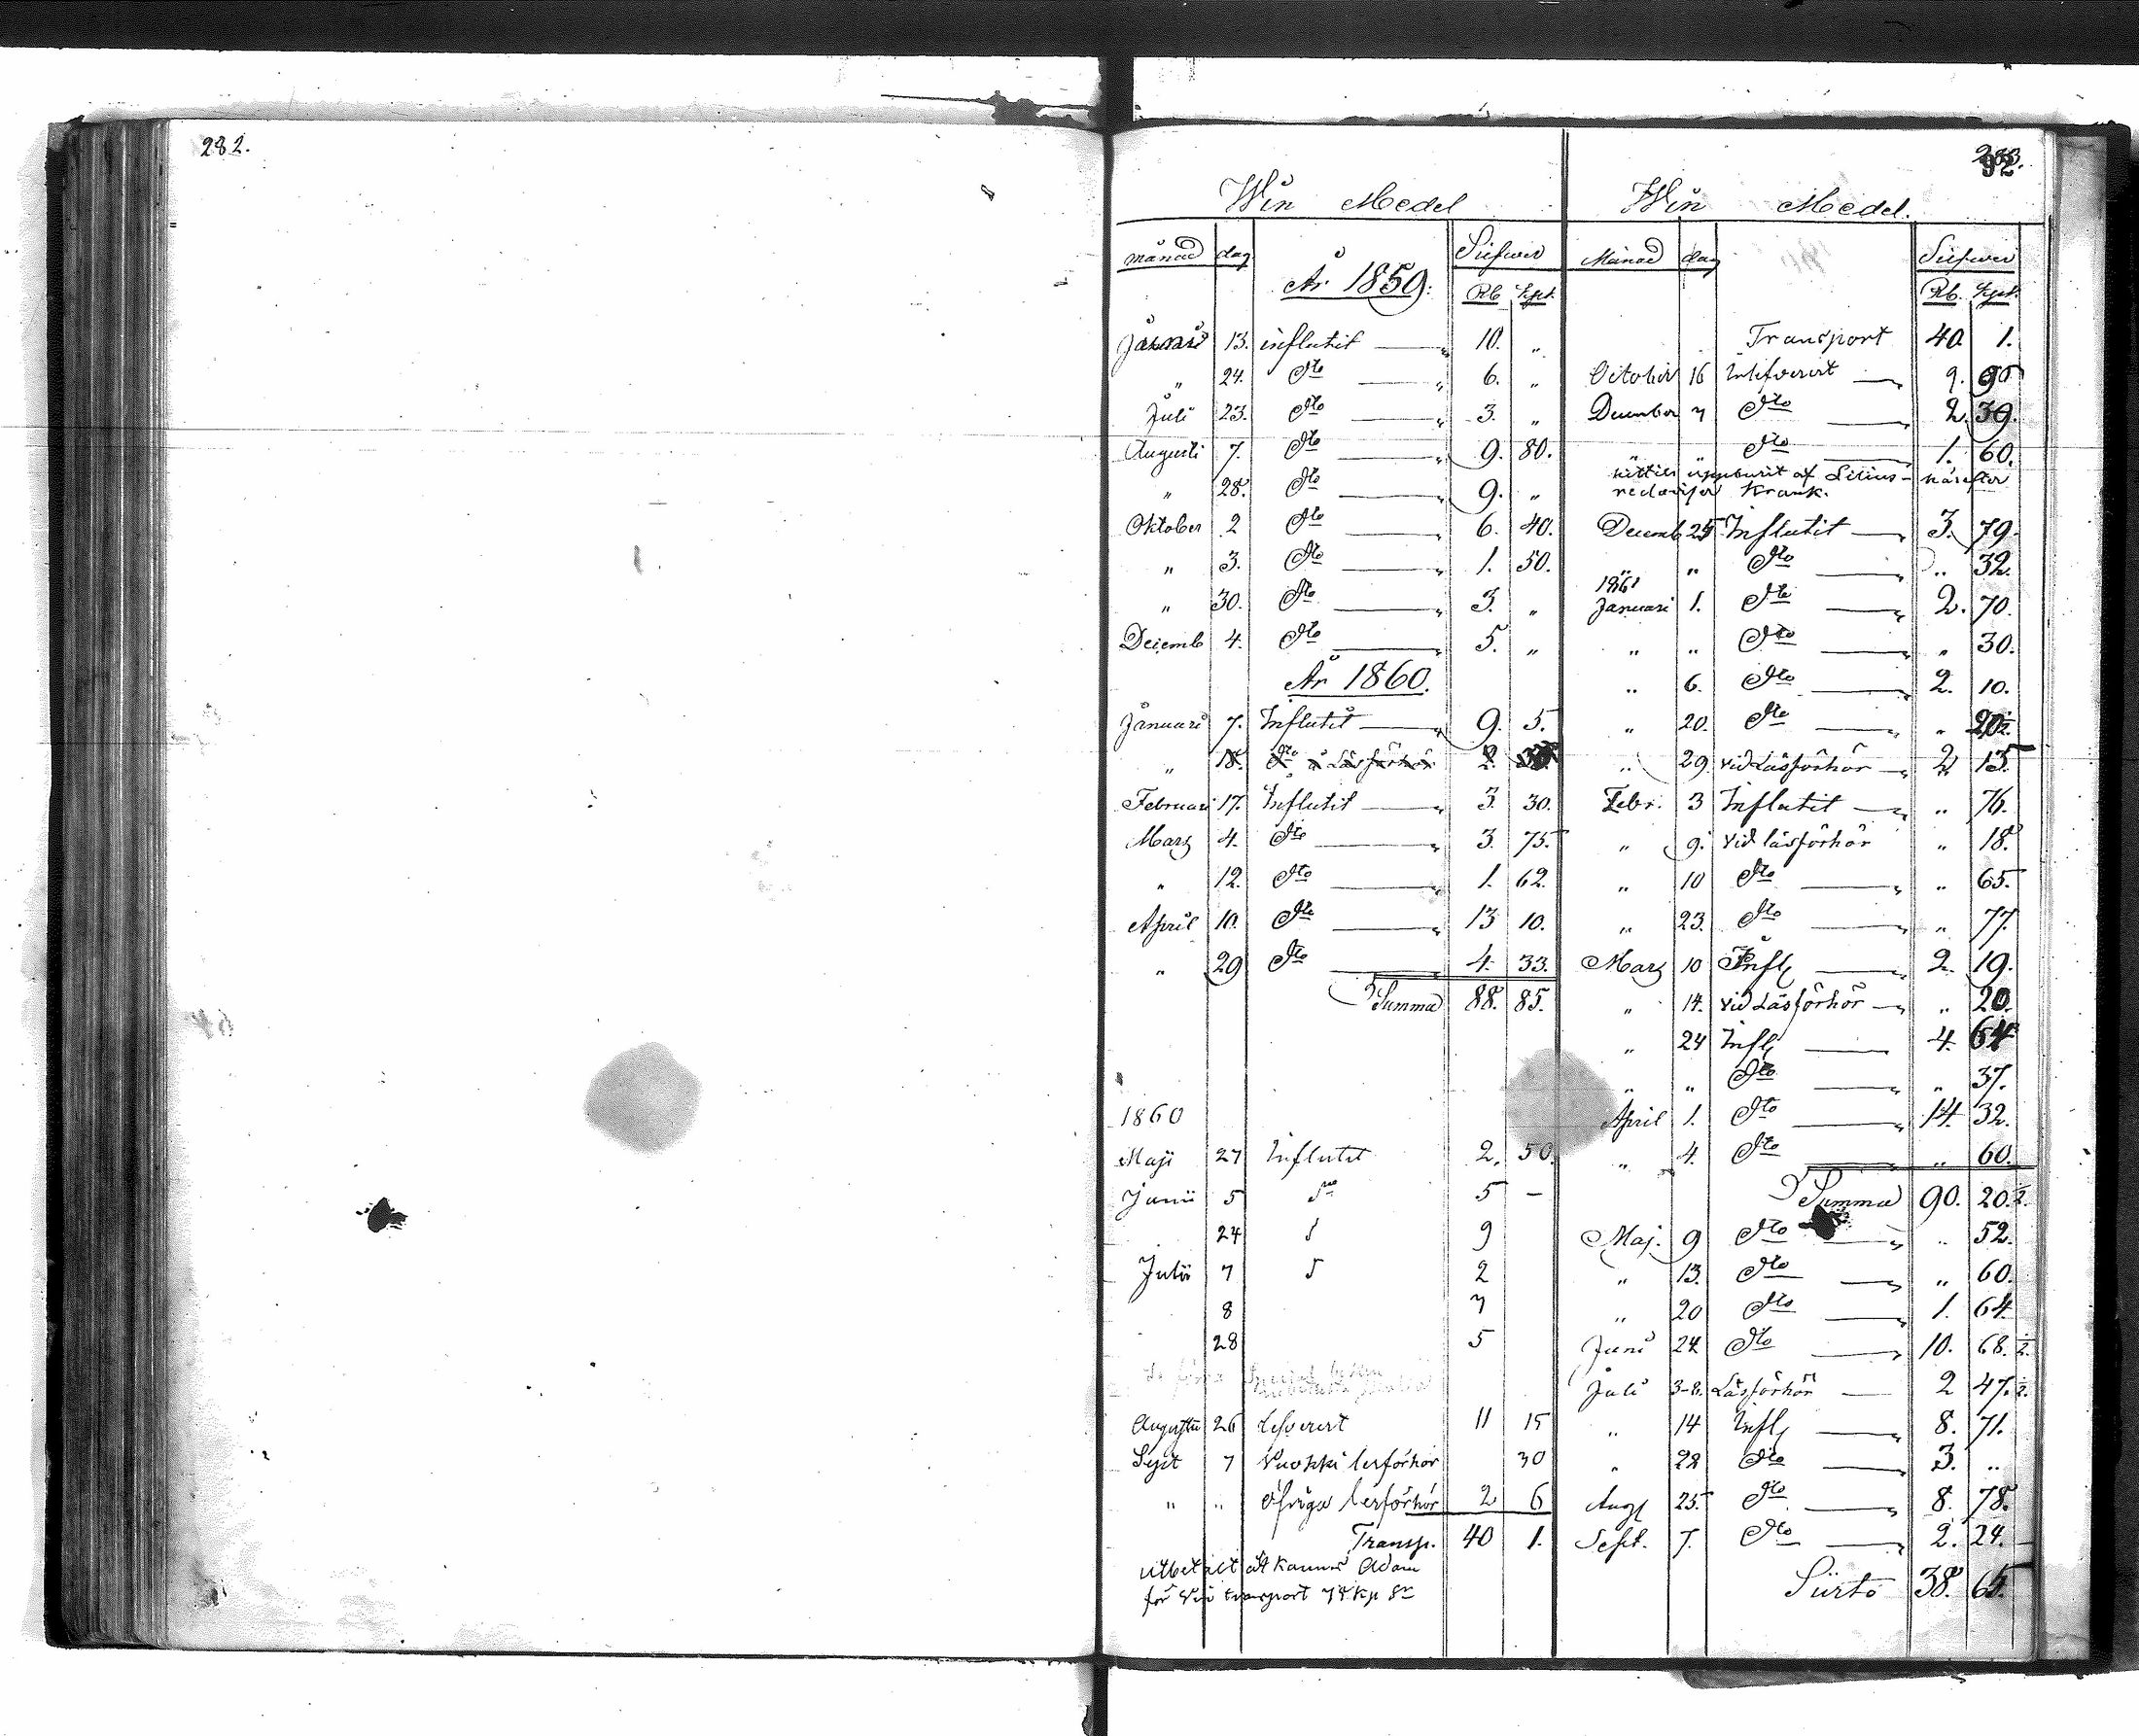 282.
Win Medel
månad dag År 1859. Silfwer
Rb. Kpk.
Juni 13. influtit 10. „
„ 24. Dto 6. „
Juli 23. Dto 3. „
Augusti 7. Dto 9. 80.
„ 28. Dto 9. „
Oktober 2 Dto 6. 40.
„ 3. Dto 1. 50.
„ 30. Dto 3. „
Decemb 4. Dto 5. „
År 1860.
Januari 7. Influtit 9. 5.
„ 18. Dto Läsförhör 2.
Februari 17. Influtit 3. 30.
Mars 4. Dto 3. 75.
„ 12. Dto 1. 62.
April 10. Dto 13 10.
„ 29 Dto 4. 33.
Summa 88. 85.
1860
Maji 27 Influtit 2. 50.
Junii 5 5 —
24 9
Julii 7 2
8 7
28 5
Augusti 26 Lefverert 11 15
Sept 7 Vuokki lesförhör 30
„ „ öfriga lesförhör 2 6
Transp. 40 1.
utbetalt åt Adam
för Vin transport 74 kp Sr
Win Medel.
Månad dag Silfwer
Rb. Kpk.
Transport 40 1.
October 16 Inlefverert 9. 95
December 7 Dto 2. 39.
„ Dto 1. 60.
hittils uppburit af Lilius härefter
redovisar Krank.
Decemb 25 Influtit 3. 79.
„ „ Dto „ 32.
1861
Januari 1. Dto 2. 70.
„ „ Dto „ 30.
„ 6. Dto 2. 10.
„ 20. Dto „ 20½.
„ 29. vid Läsförhör 2. 15.
Febr. 3 Influtit „ 76.
„ 9. vid läsförhör „ 18.
„ 10 Dto „ 65.
„ 23. Dto „ 77.
Mars 10 Infl. 2. 19.
„ 14. vid Läsförhör „ 20.
„ 24 Infl. 4. 64
„ „ Dto „ 37.
April 1. Dto 14. 32.
„ 4. Dto „ 60.
Summa 90. 20.½.
Maj. 9 Dto „ 52.
„ 13. Dto „ 60.
„ 20 Dto 1. 64.
Juni 24 Dto 10. 68.½.
Juli 3-8. Läsförhör 2 47.½.
„ 14 Infl. 8. 71.
„ 22 Dto 3. „
Aug. 25. Dto 8. 78.
Sept. 7. Dto 2. 24.
Siirto 38. 65.